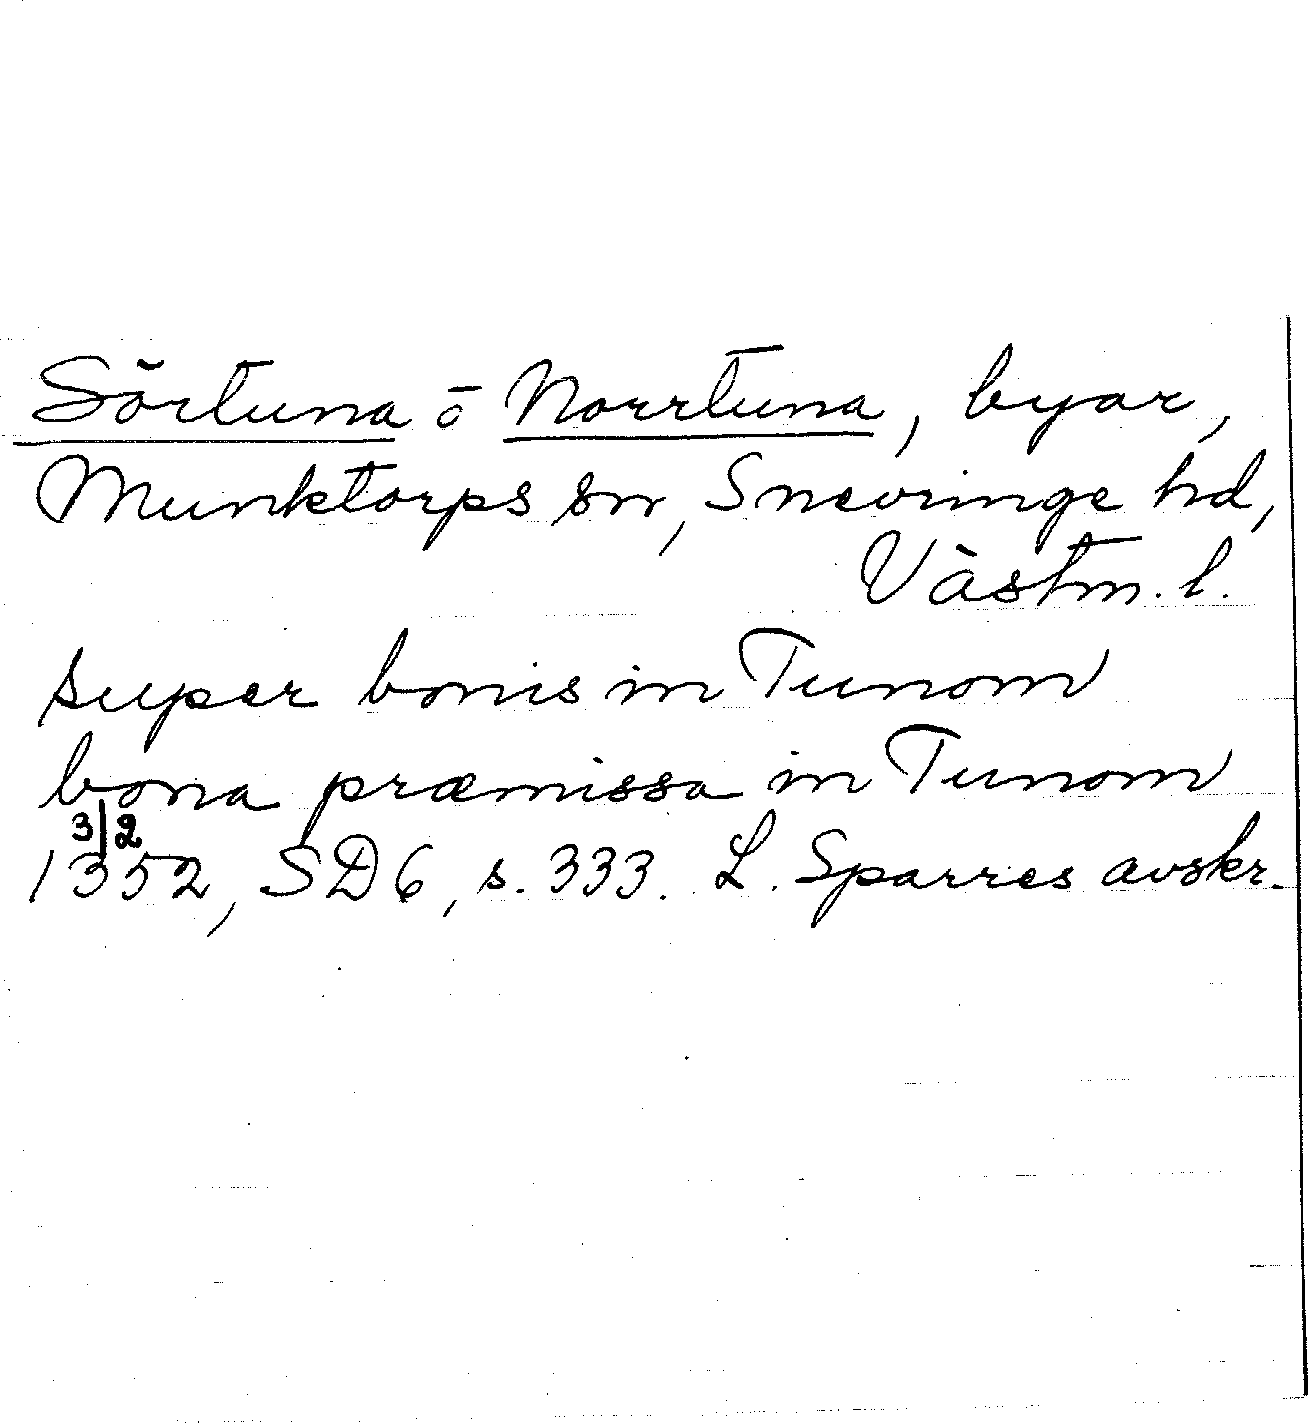 Sörtuna o Norrtuna, byar,
Munktorps sn, Snevringe hd,
Västm. l.
super bonis in Tunom
bona præmissa in Tunom
3/2
1352, SD 6, s. 333. L. Sparres avskr.